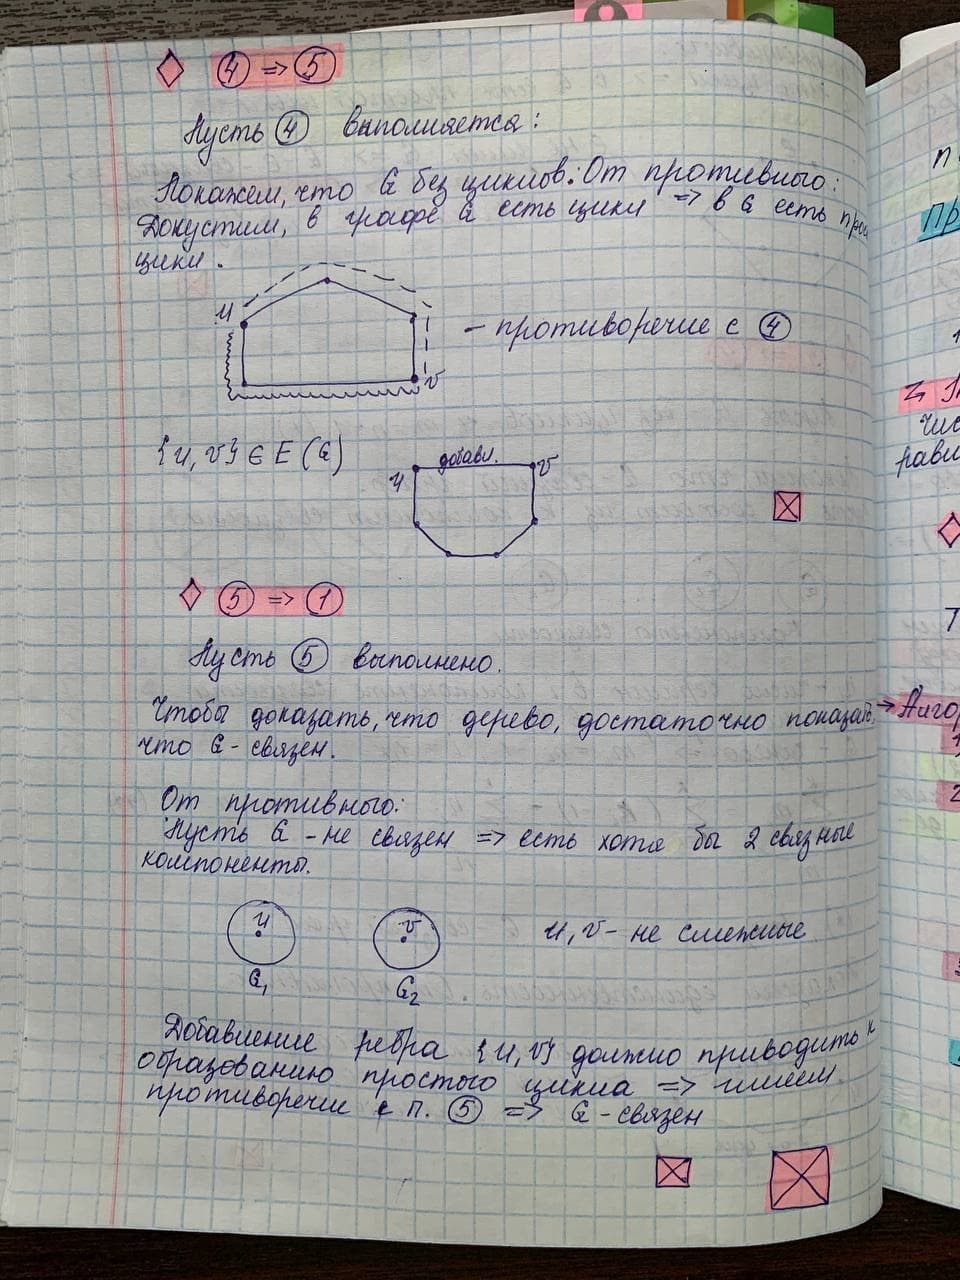 ④ => ⑤
Пусть ④ выполняется:
Покажем, что G без циклов. От противного:
Допустим, в графе G есть цикл => в G есть прос
цикл.
u
v
- противоречие с ④
{u, v} ∈ E (G)
добавл.
u
v
⑤ => ①
Пусть ⑤ выполнено.
Чтобы доказать, что дерево, достаточно показать,
что G - связен.
От противного:
Пусть G - не связен => есть хотя бы 2 связные
компоненты.
u
v
u, v - не смежные
G₁
G₂
Добавление ребра {u, v} должно приводить к
образованию простого цикла => имеем
противоречие с п. ⑤ => G - связен
п
Пр
чис
равн
→ Алгор
1
2
3